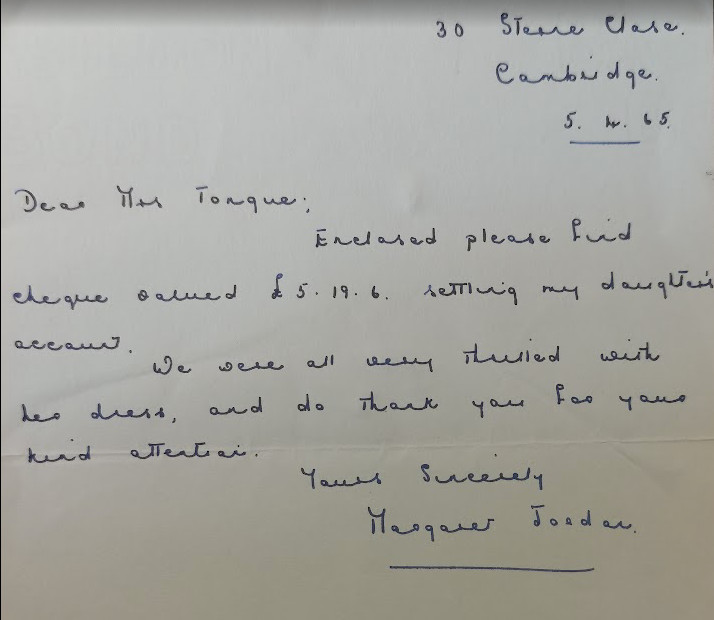 30 Sterne Close.
Cambridge.
5. 4. 65.
Dear Mrs Tongue;
Enclosed please find
cheque valued £5.19.6. settling my daughter's
account.
We were all very thrilled with
her dress, and do thank you for your
kind attention.
Yours Sincerely
Margaret Jordan.